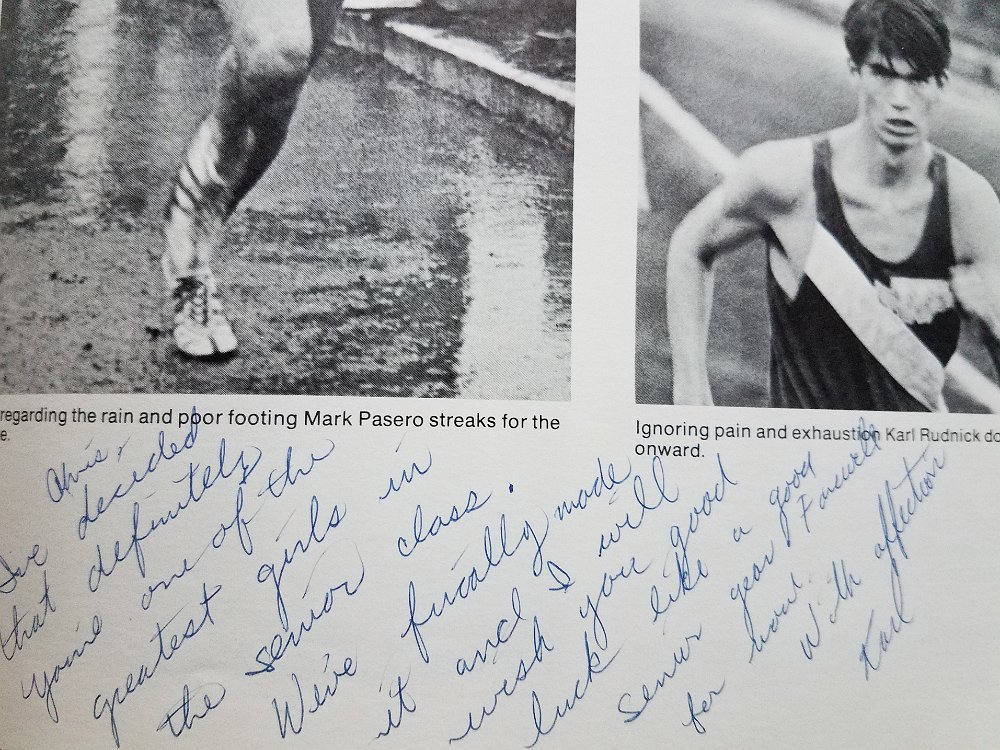 regarding the rain and poor footing Mark Pasero streaks for the
e.
Ignoring pain and exhaustion Karl Rudnick do
onward.
Chris,
I've decided
that definitely
you're one of the
greatest girls in
the senior class.
We've finally made
it and I will
wish you good
luck like a good
senior year Farewell
for now.
With affection
Karl